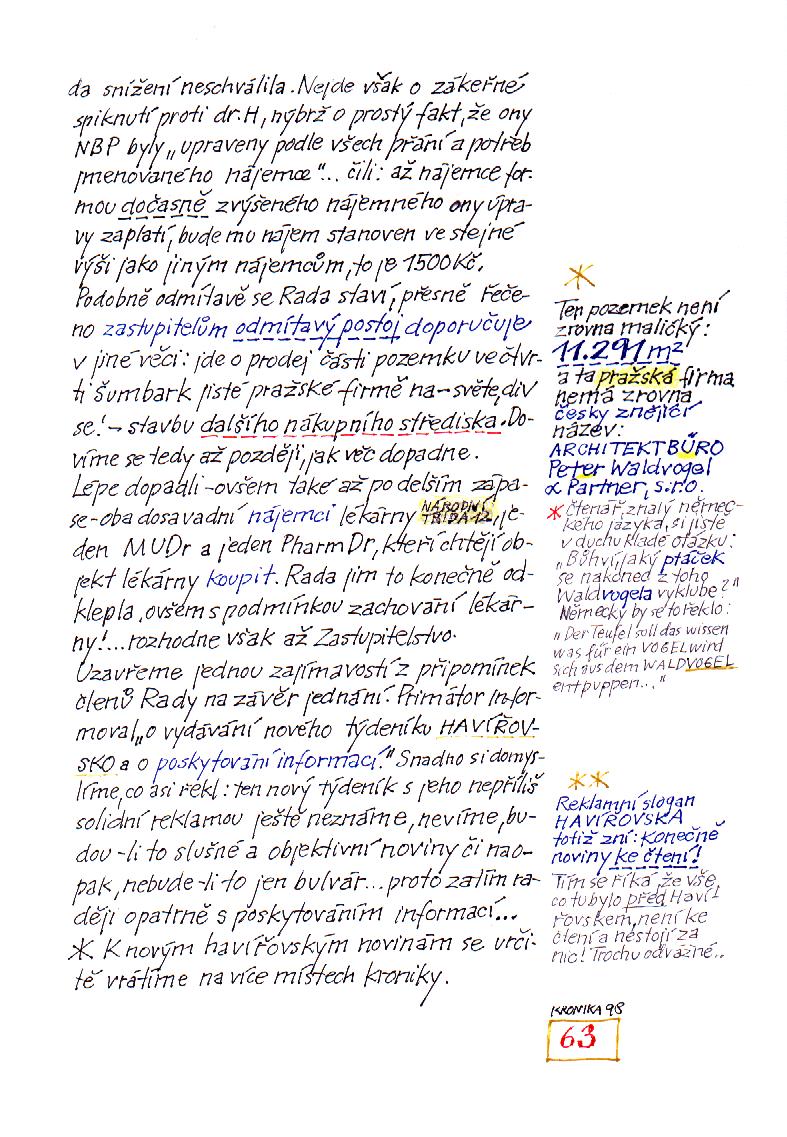 da snížení neschválila. Nejde však o zákeřné
spiknutí proti dr. H, nýbrž o prostý fakt, že ony
NBP byly „upraveny podle všech přání a potřeb
jmenovaného nájemce"... čili: až nájemce for-
mou dočasně zvýšeného nájemného ony úpra-
vy zaplatí, bude mu nájem stanoven ve stejné
výši jako jiným nájemcům, to je 1500 Kč.
Podobně odmítavě se Rada staví, přesně řeče-
no zastupitelům odmítavý postoj doporučuje
v jiné věci: jde o prodej části pozemku ve čtvr-
ti Šumbark jisté pražské firmě na → světe, div
se! → stavbu dalšího nákupního střediska. Do-
víme se tedy až později, jak věc dopadne.
Lépe dopadli - ovšem také až po delším zápa-
se - oba dosavadní nájemci lékárny NÁRODNÍ TŘÍDA 12, je-
den MUDr a jeden PharmDr, kteří chtějí ob-
jekt lékárny koupit. Rada jim to konečně od-
klepla, ovšem s podmínkou zachování lékár-
ny!... rozhodne však až Zastupitelstvo.
Uzavřeme jednou zajímavostí z připomínek
členů Rady na závěr jednání. Primátor infor-
moval „o vydávání nového týdeníku HAVÍŘOV-
SKO a o poskytování informací." Snadno si domys-
líme, co asi řekl: ten nový týdeník s jeho nepříliš
solidní reklamou ještě neznáme, nevíme, bu-
dou-li to slušné a objektivní noviny či nao-
pak, nebude-li to jen bulvár... proto zatím ra-
ději opatrně s poskytováním informací...
* K novým havířovským novinám se urči-
tě vrátíme na více místech kroniky.
*
Ten pozemek není
zrovna maličký:
11.291 m²
a ta pražská firma
nemá zrovna
česky znějící
název:
ARCHITEKTBÜRO
Peter Waldvogel
& Partner, s.r.o.
* Čtenář, znalý němec-
kého jazyka, si jistě
v duchu klade otázku:
„Bůhví, jaký ptáček
se nakonec z toho
Waldvogela vyklube?"
Německy by se to řeklo:
„Der Teufel soll das wissen
was für ein VOGEL wird
sich aus dem WALDVOGEL
entpuppen..."
**
Reklamní slogan
HAVÍŘOVSKA
totiž zní: Konečně
noviny ke čtení!
Tím se říká, že vše,
co tu bylo před Haví-
řovskem, není ke
čtení a nestojí za
nic! Trochu odvážné..
KRONIKA 98
63